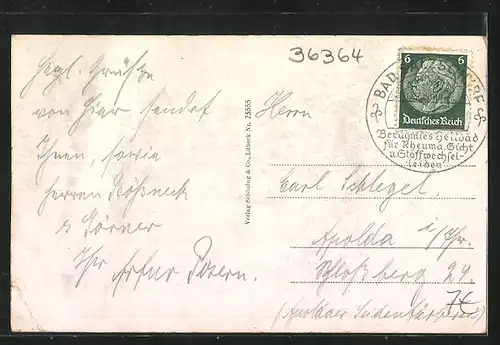 36364
Hrzl. Grüße
von hier sendet
Ihnen, sowie
Herren Rößneck
u. Körner
Ihr Artur
Verlag Schöning & Co., Lübeck Nr. 25555
6 6
Deutsches Reich
BAD
Berühmtes Heilbad
für Rheuma, Gicht
u. Stoffwechsel-
leiden
Herrn
Carl Schlegel.
Apolda i/Thr.
Schloßberg 29.
(Apoldaer Seidenfärberei)